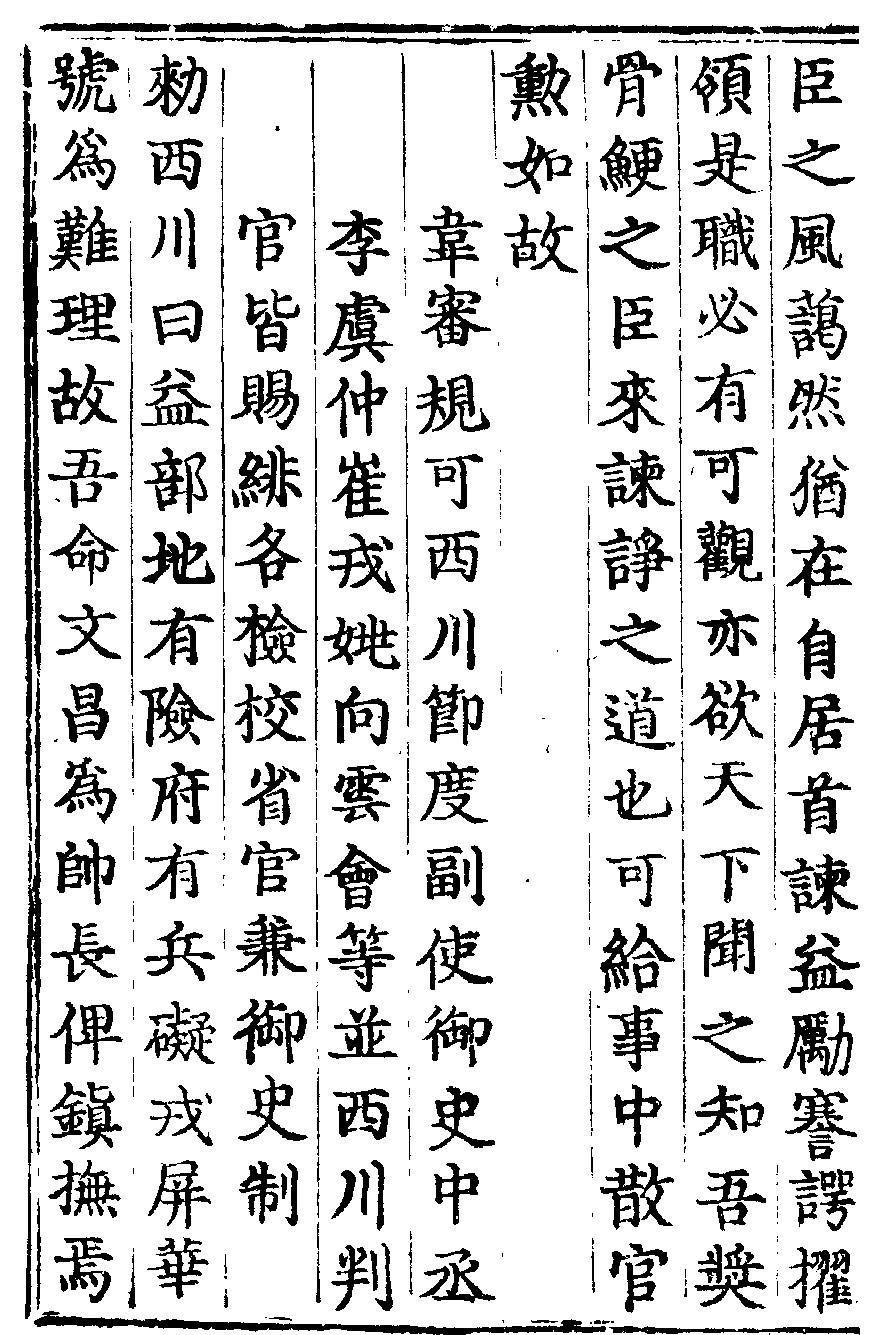 臣之風藹然猶在自居首諫益勵謇諤擢
領是職必有可觀亦欲天下聞之知吾奬
骨鯁之臣來諫諍之道也可給事中散官
勲如故
韋審規可西川節度副使御史中丞
李虞仲崔戎姚向雲會等並西川判
官皆賜緋各檢校省官兼御史制
勑西川曰益部地有險府有兵礙戎屏華
號爲難理故吾命文昌爲帥長俾鎮撫焉